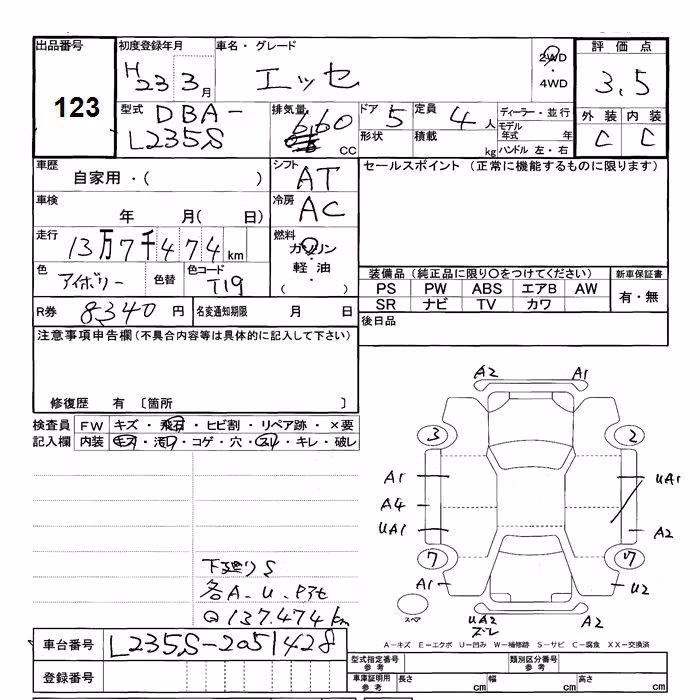 出品番号 初度登録年月 車名・グレード 評価点
123 H23 3月 エッセ 2WD ・ 4WD 3.5
型式 DBA-L235S 排気量 660 CC ドア 5 形状 定員 4人 積載 kg ディーラー・並行 モデル年式 年 ハンドル 左・右 外装 内装
C C
車歴 自家用・( ) シフト AT セールスポイント (正常に機能するものに限ります)
車検 年 月( 日) 冷房 AC
走行 13万7千474km 燃料 ガソリン・軽油・( )
色 アイボリー 色替 色コード T19 装備品 (純正品に限り○をつけてください) 新車保証書
PS PW ABS エアB AW 有・無
SR ナビ TV カワ
R券 8,340 円 名変通知期限 月 日 後日品
注意事項申告欄 (不具合内容等は具体的に記入して下さい)
修復歴 有 〔箇所 〕
検査員 FW キズ・飛石・ヒビ割・リペア跡・×要
記入欄 内装 キズ・汚れ・コゲ・穴・スレ・キレ・破レ
A2 A1
3 2
A1 UA1
A4
UA1 A2
7 7
A1 U2
スペア UA2 ズレ A2
下廻りS
各A.U.
Q 137.474km
A-キズ E-エクボ U-凹み W-補修跡 S-サビ C-腐食 XX-交換済
車台番号 L235S-2051428
登録番号
型式指定番号 参考 類別区分番号 参考
車庫証明用 参考 長さ cm 幅 cm 高さ cm